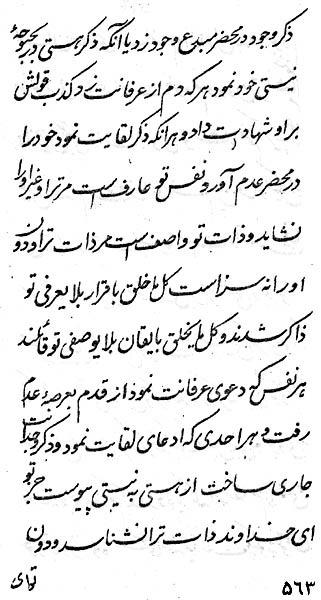 ذکر وجود در محضر مبدع وجود زد یا آنکه ذکر هستی در بحبوحهٔ
نیستی خود نمود هر که دم از عرفانت زد کذب قولش
بر او شهادت داد و هر آنکه ذکر لقایت نمود خود را
در محضر عدم آورد و نفس تو عارف است مر ترا و غیر او را
نشاید و ذات تو واصف است مر ذات ترا و دون
او را نه سزا است کل ما خلق باقرار بلا یعرفی تو
ذاکر شدند و کل ما یخلق بایقان بلا یوصفی تو قائلند
هر نفس که دعوی عرفانت نمود از قدم بعرصهٔ عدم
رفت و هر احدی که ادعای لقایت نمود و ذکر وجدانت
جاری ساخت از هستی به نیستی پیوست جز تو
ای خداوند ذات ترا نشناسد و دون
توای
۵۶۳